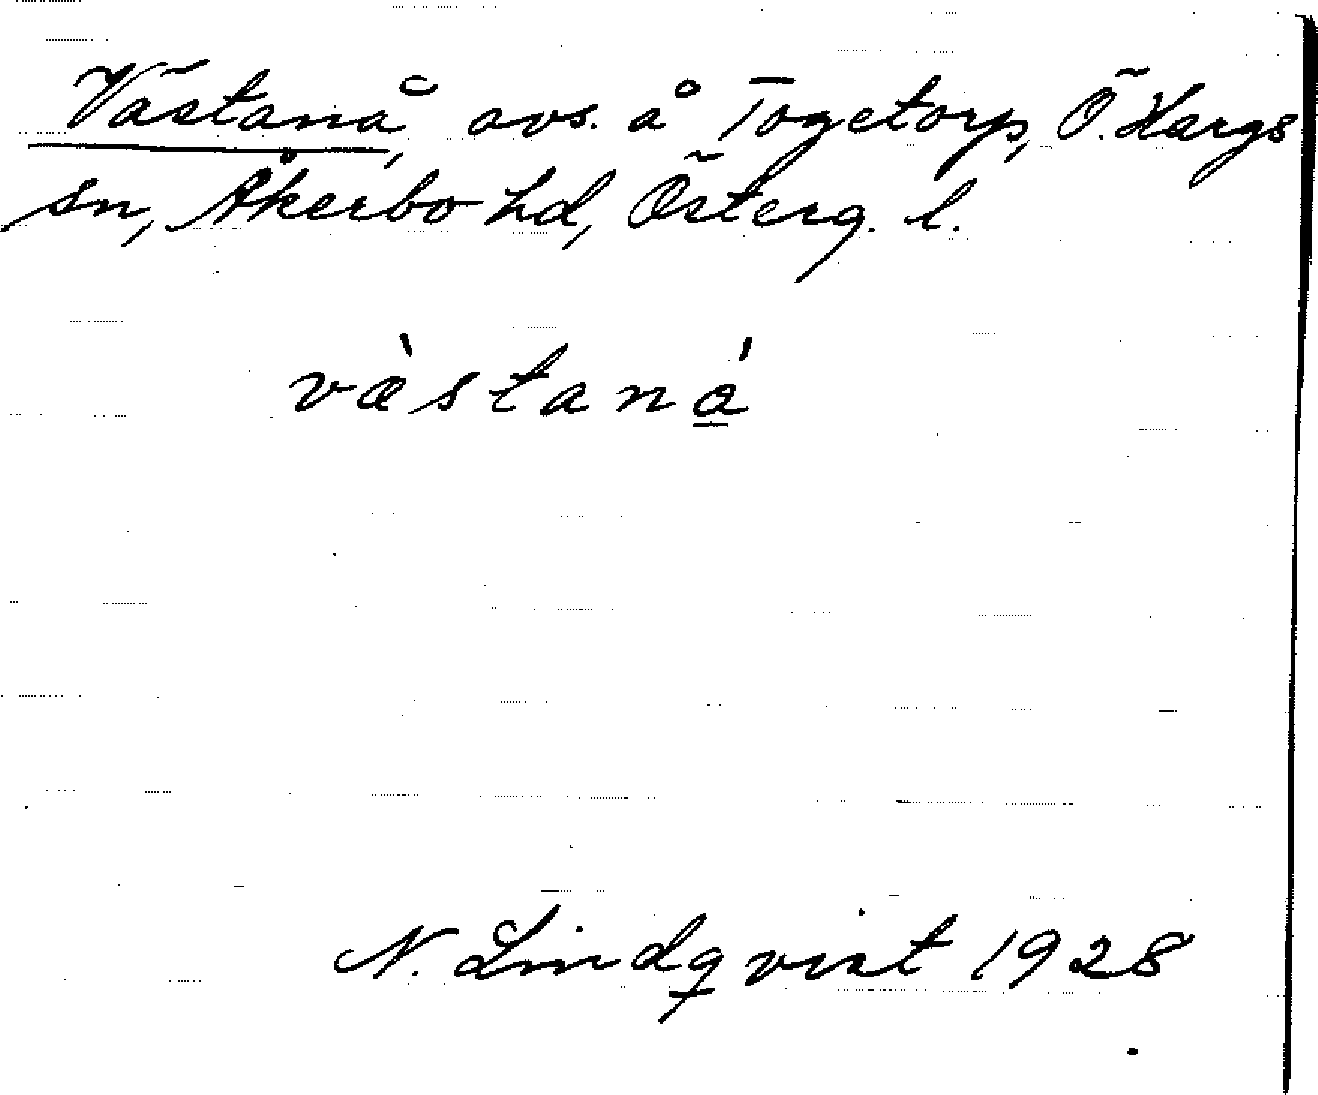 Västanå, avs. å Togetorp, Ö. Hargs
sn, Åkerbo hd, Österg. l.
væ̀staná̲
N. Lindqvist 1928